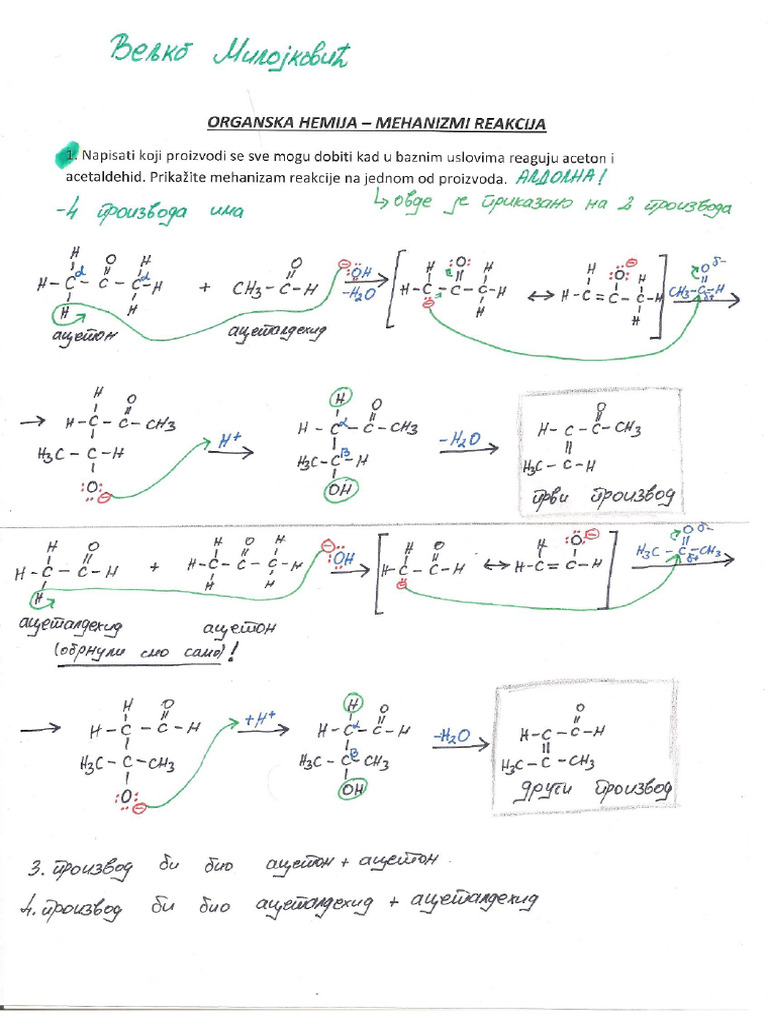 Вељко Милојковић
ORGANSKA HEMIJA – MEHANIZMI REAKCIJA
1. Napisati koji proizvodi se sve mogu dobiti kad u baznim uslovima reaguju aceton i
acetaldehid. Prikažite mehanizam reakcije na jednom od proizvoda. АЛДОЛНА!
-4 производа има
↳ овде је приказано на 2 производа
H O H
H-Cα-C-Cα-H + CH3-C-H ⊖:ÖH -H2O [H-C-C-C-H ↔ H-C=C-C-H] CH3-C-H δ+ Oδ-
H H
ацетон ацеталдехид
→ H-C-C-CH3 H+ → H-Cα-C-CH3 -H2O → H-C-C-CH3
H3C-C-H H3C-Cβ-H H3C-C-H
:O:⊖ OH први производ
H O H O H
H-C-C-H + H-C-C-C-H ⊖:ÖH [H-C-C-H ↔ H-C=C-H] H3C-C-CH3 δ+ Oδ-
H H H
ацеталдехид ацетон
(обрнули смо само)!
→ H-C-C-H +H+ → H-Cα-C-H -H2O → H-C-C-H
H3C-C-CH3 H3C-Cβ-CH3 H3C-C-CH3
:O:⊖ OH други производ
3. производ би био ацетон + ацетон.
4. производ би био ацеталдехид + ацеталдехид